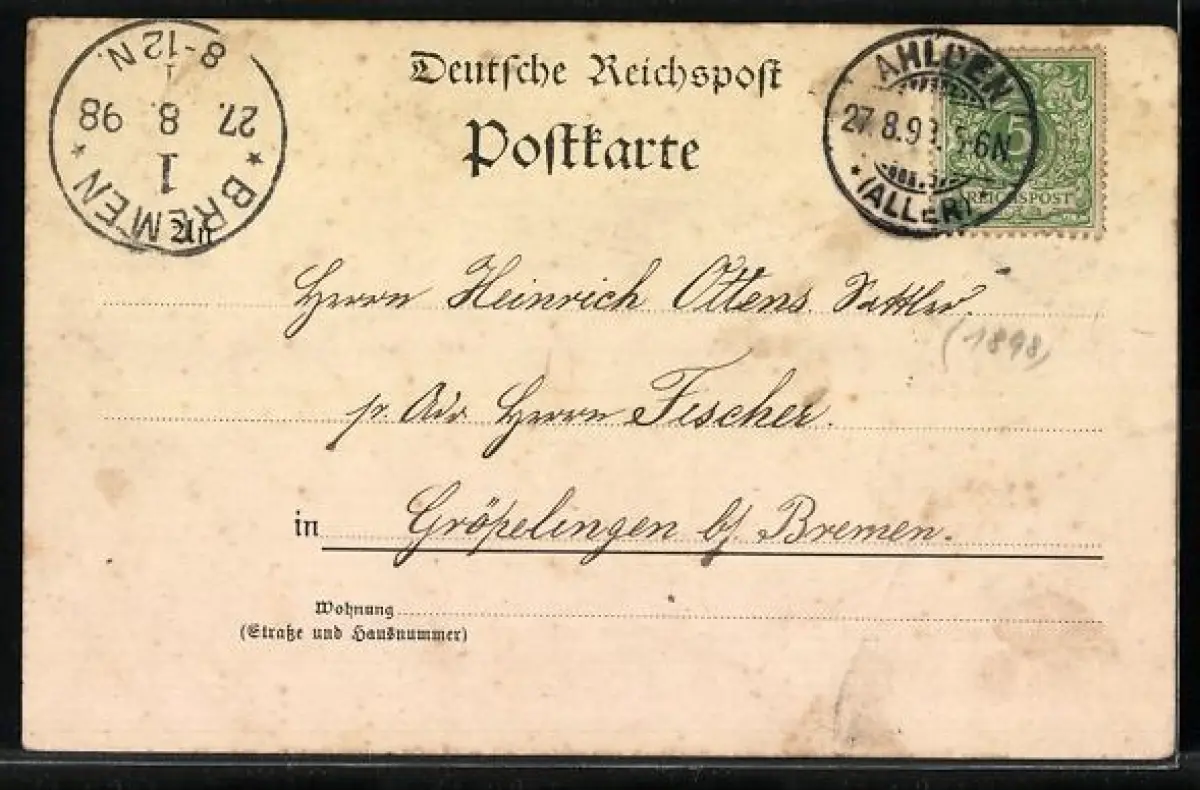 Deutsche Reichspost
Postkarte
BREMEN
1
27. 8. 98
8-12 N.
AHLDEN
27.8.98. 5-6N
(ALLER)
5
REICHSPOST
An
Herrn Heinrich Ottens. Sattler.
(1898)
p. Adr Herrn Fischer.
in Gröpelingen b/ Bremen.
Wohnung
(Straße und Hausnummer)